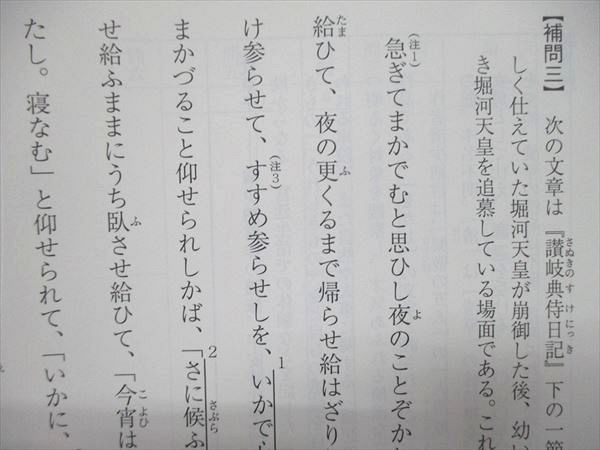 【補問三】 次の文章は『讃岐典侍日記』下の一節
しく仕えていた堀河天皇が崩御した後、幼い
き堀河天皇を追慕している場面である。これ
急ぎてまかでむと思ひし夜のことぞか
給ひて、夜の更くるまで帰らせ給はざり
け参らせて、すすめ参らせしを、いかで
まかづること仰せられしかば、「さに候ふ
せ給ふままにうち臥させ給ひて、「今宵は
たし。寝なむ」と仰せられて、「いかに、